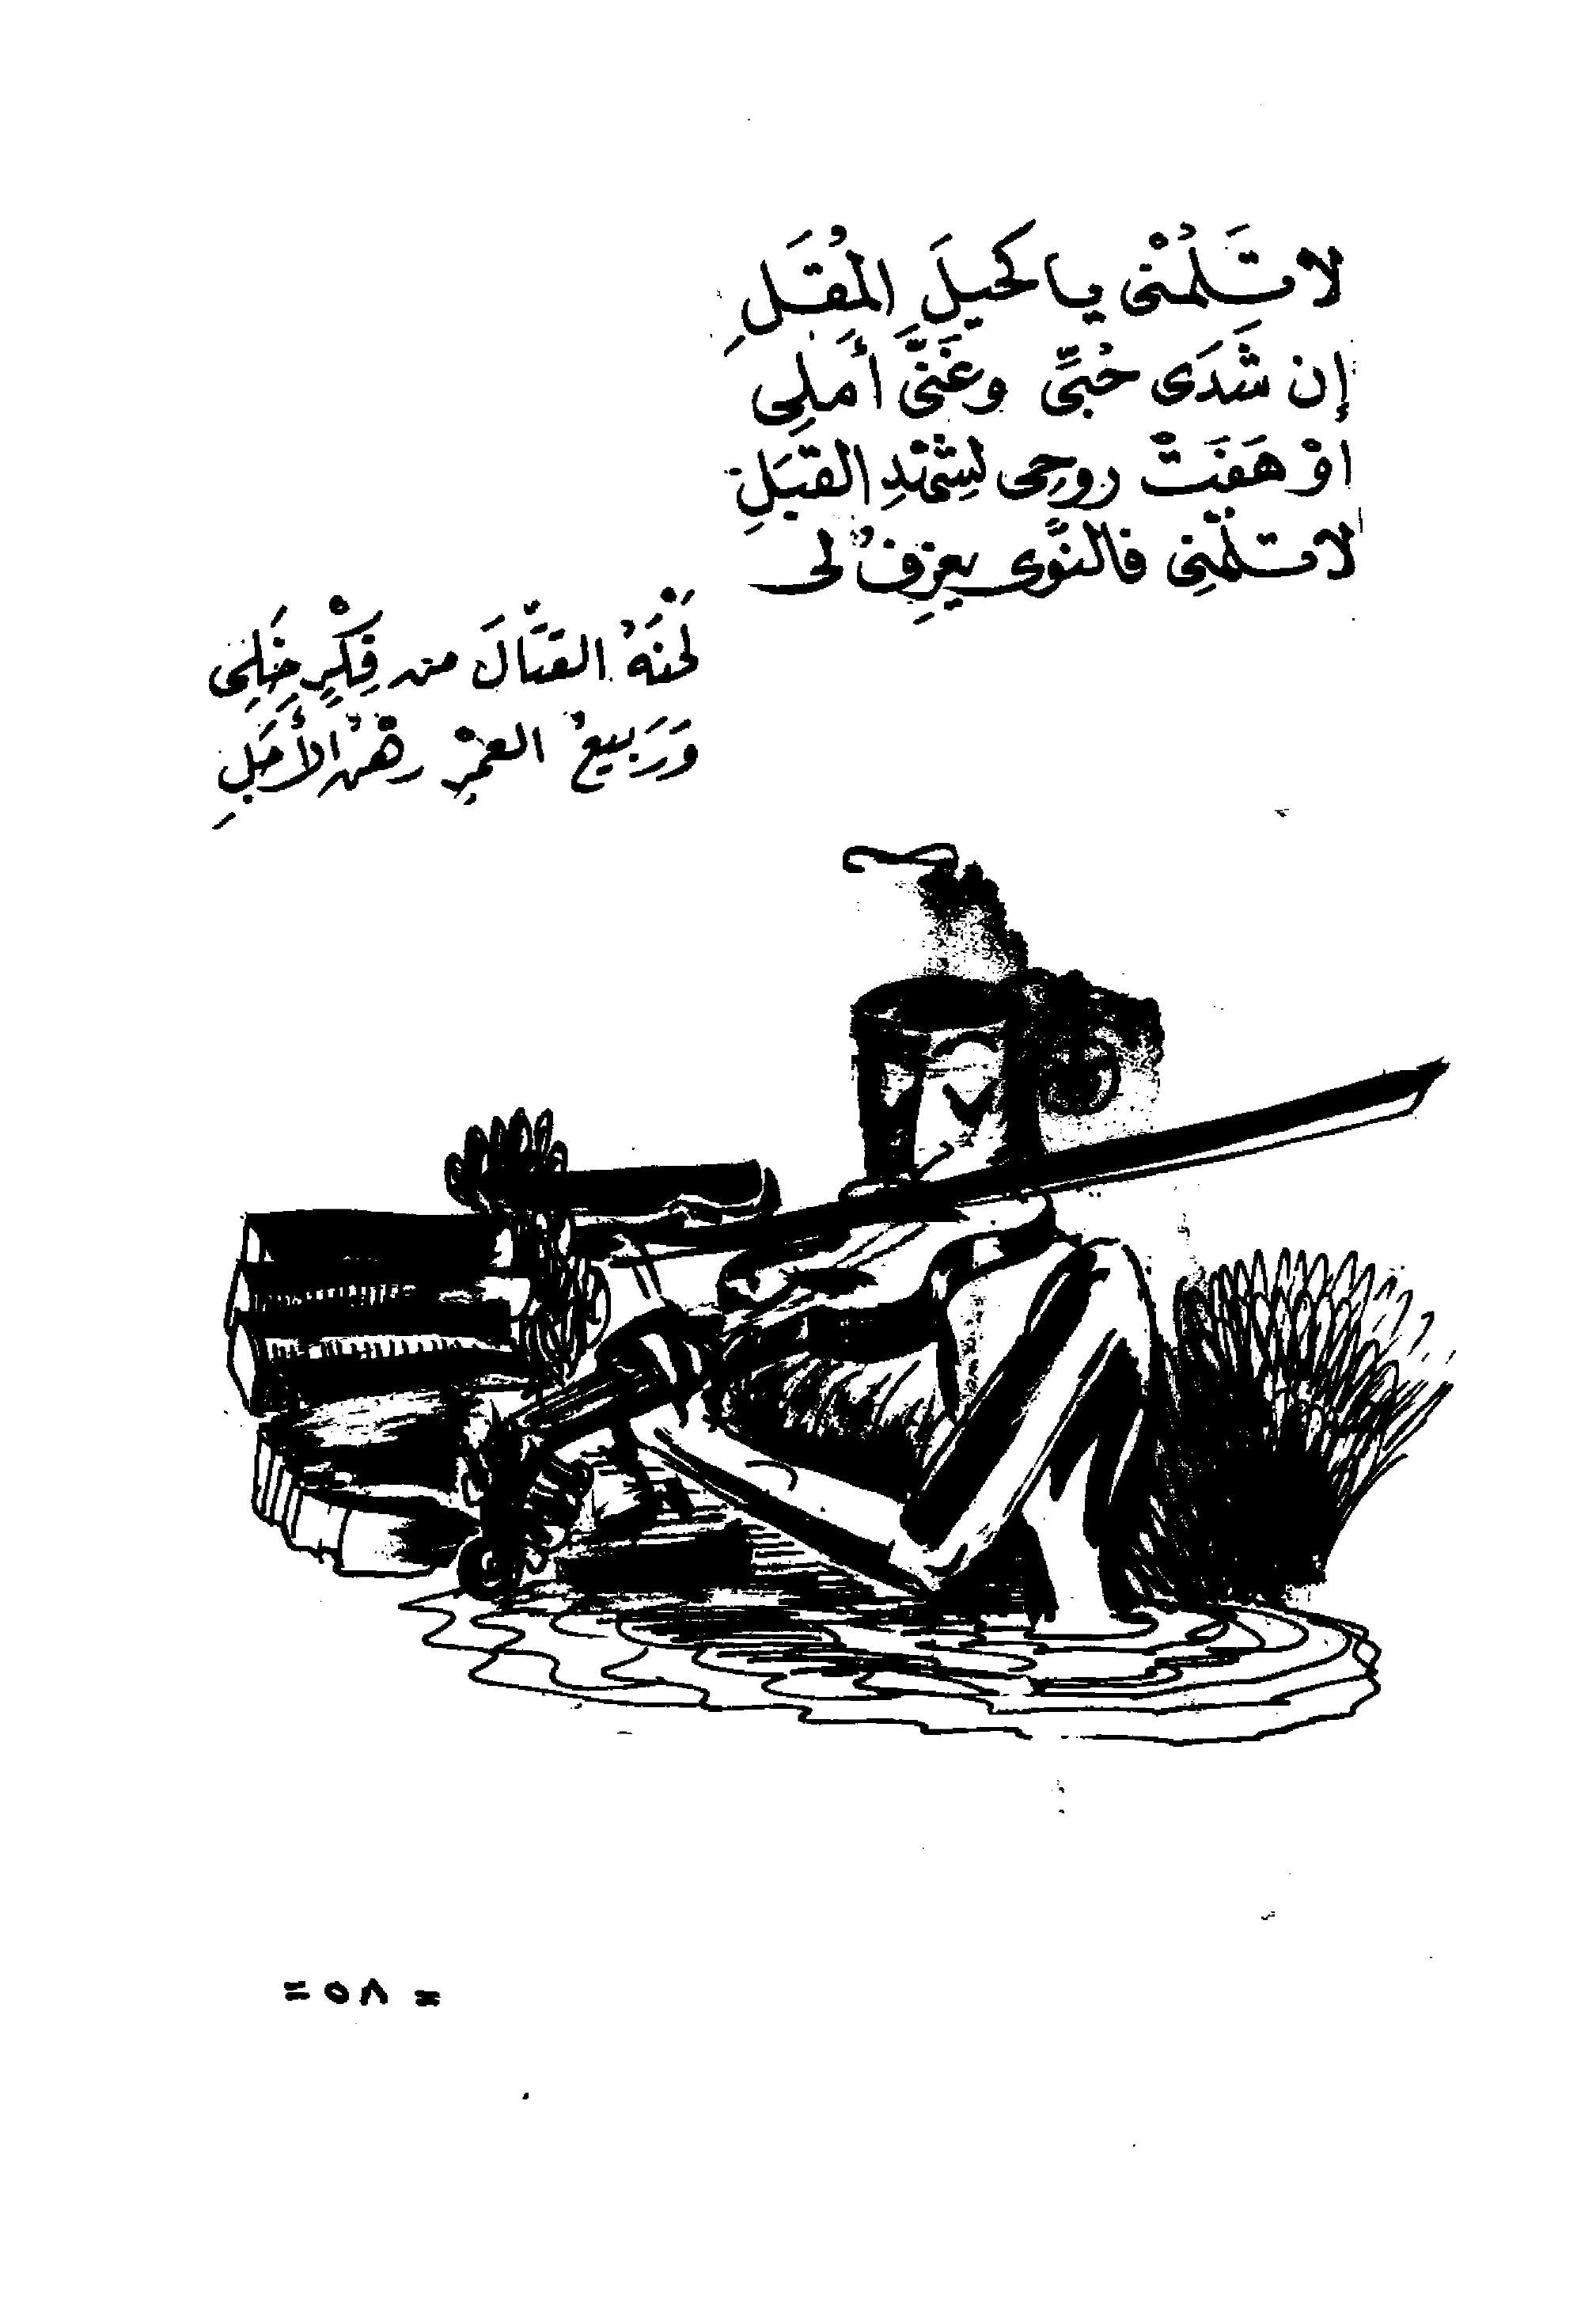 لا تَلُمْنى يا كحيلَ المُقَلِ
إن شَدَى حُبِّى وغَنَّى أَملِى
اوْ هَفَتْ روحِى لِشَهْدِ القُبَلِ
لا تلُمْنِى فالنَّوى يعزِفُ لى
لَحْنَهُ القتَّالَ من فِكْرٍ خَلِى
وَرَبيعُ العمْرِ رهْنُ الأَجَلِ
= ٥٨ =